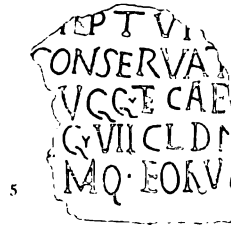 EPTVI
ONSERVAT
VGGTE CAE
GVIICLDN
5 MQ·EORV